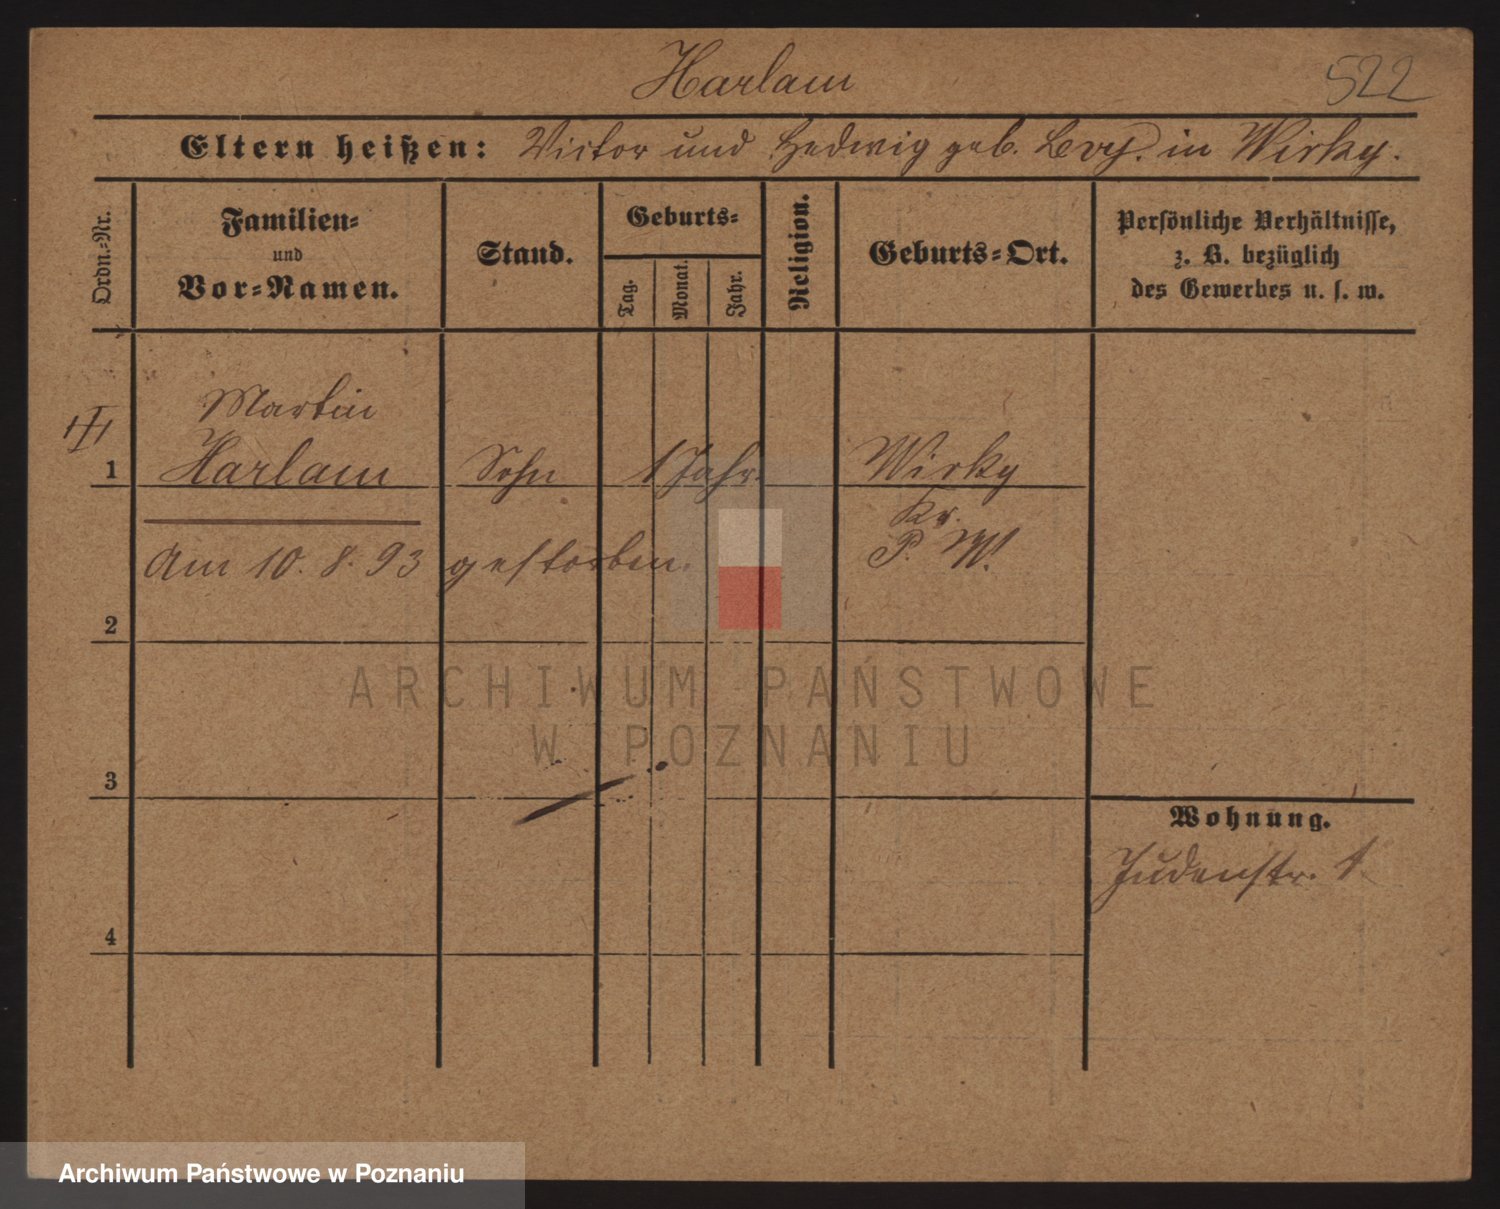 Harlam
522
Eltern heißen: Victor und Hedwig geb. Levy. in Wirky.
Ordn.-Nr.
Familien-
und
Vor-Namen.
Stand.
Geburts-
Tag.
Monat.
Jahr.
Religion.
Geburts-Ort.
Persönliche Verhältnisse,
z. B. bezüglich
des Gewerbes u. s. w.
Martin
1 Harlam Sohn 1 Jahr. Wirky
Kr.
Am 10. 8. 93 gestorben. P. W.
2
3
4
Wohnung.
Judenstr. 1
ARCHIWUM PAŃSTWOWE
W POZNANIU
Archiwum Państwowe w Poznaniu